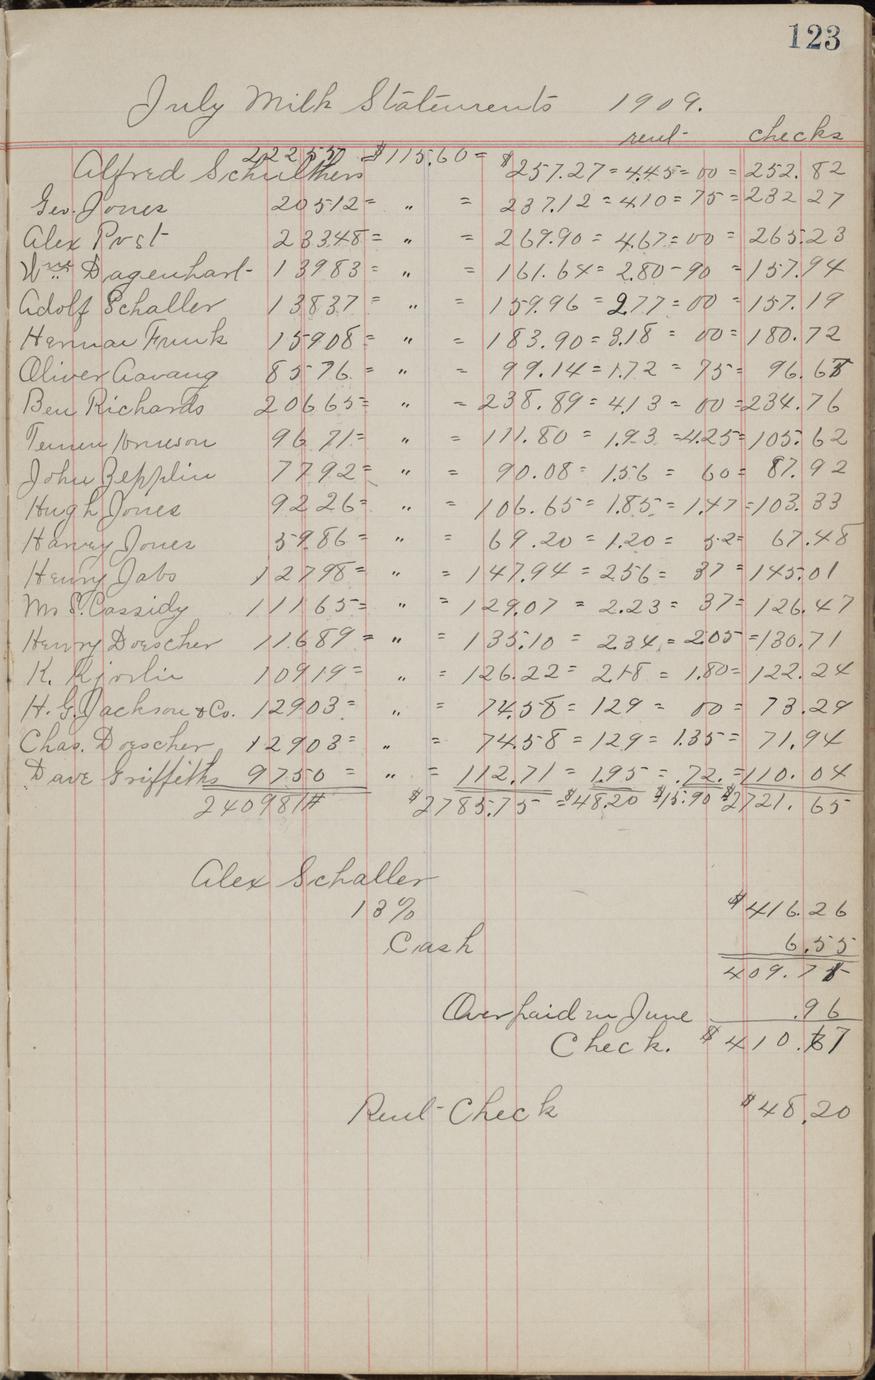 123
July Milk Statements 1909.
rent checks
Alfred Schulthers 22255 = $115.60 = $257.27 = 4.45 = 00 = 252.82
Geo. Jones 20512 = " = 237.12 = 4.10 = 75 = 232 27
Alex Post 23348 = " = 269.90 = 4.67 = 00 = 265.23
Wm Dagenhart 13983 = " = 161.64 = 2.80 - 90 = 157.94
Adolf Schaller 13837 = " = 159.96 = 2.77 = 00 = 157.19
Herman Funk 15908 = " = 183.90 = 3.18 = 00 = 180.72
Oliver Aavang 8576 = " = 99.14 = 1.72 = 75 = 96.67
Ben Richards 20665 = " = 238.89 = 4.13 = 00 = 234.76
9671 = " = 111.80 = 1.93 = 4.25 = 105.62
John Zepplin 7792 = " = 90.08 = 1.56 = 60 = 87.92
Hugh Jones 9226 = " = 106.65 = 1.85 = 1.47 = 103.33
Harvey Jones 5986 = " = 69.20 = 1.20 = 52 = 67.48
Henry Jabs 12798 = " = 147.94 = 2.56 = 37 = 145.01
Mr S. Cassidy 11165 = " = 129.07 = 2.23 = 37 = 126.47
Henry Doescher 11689 = " = 135.10 = 2.34 = 2.05 = 130.71
K. 10919 = " = 126.22 = 2.18 = 1.80 = 122.24
H. G. Jackson & Co. 12903 = " = 74.58 = 129 = 00 = 73.29
Chas. Doescher 12903 = " = 74.58 = 129 = 1.35 = 71.94
Dave Griffiths 9750 = " = 112.71 = 1.95 = .72. = 110.04
240981# $2785.75 = $48.20 $15.90 $2721.65
Alex Schaller
18% $416.26
Cash 6.55
409.71
Overpaid in June .96
Check. $410.67
Rent Check $48.20